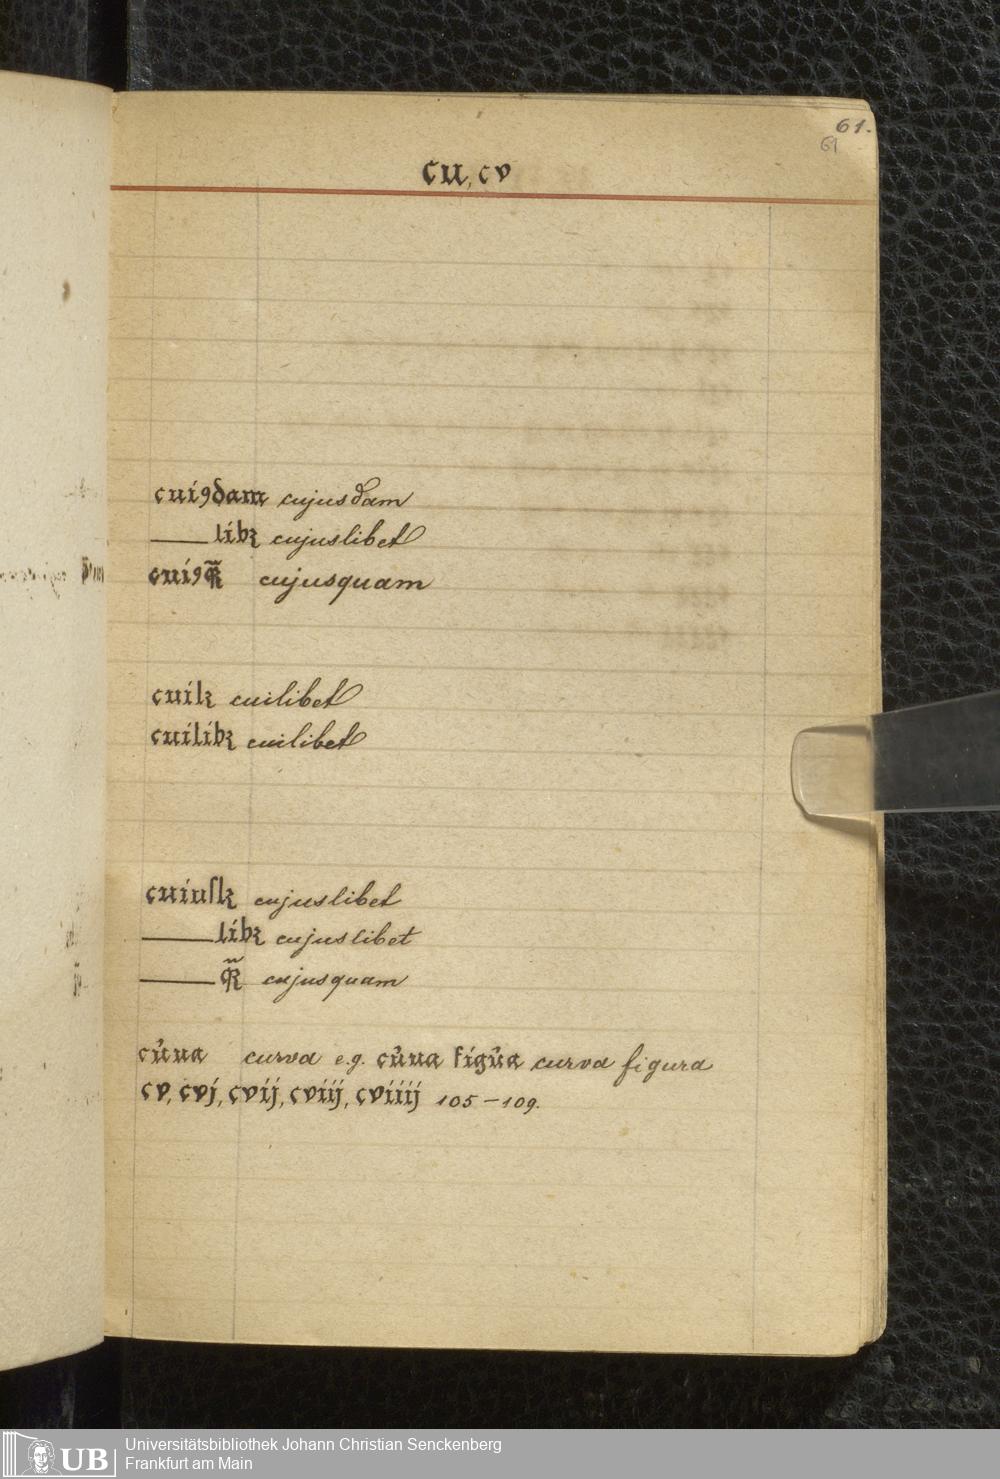 61.
61
cu, cv
cuiꝯdam cujusdam
— libꝫ cujuslibet
cuiꝯq̃ꝫ cujusquam
cuilꝫ cuilibet
cuilibꝫ cuilibet
cuiuſlꝫ cujuslibet
— libꝫ cujuslibet
— q̃ꝫ cujusquam
cu᷑ua curva e.g. cu᷑ua figu᷑a curva figura
cv, cvj, cvij, cviij, cviiij 105–109.
UB
Universitätsbibliothek Johann Christian Senckenberg
Frankfurt am Main